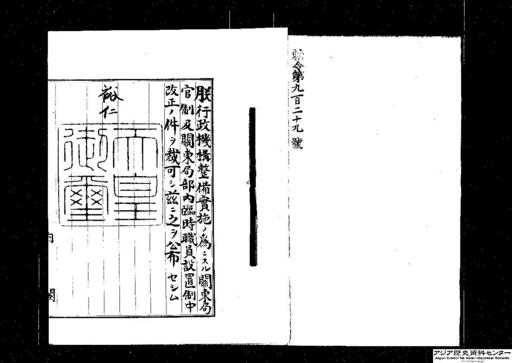 勅令第九百二十九號
朕行政機構整備實施ノ爲ニスル關東局
官制及關東局部內臨時職員設置制中
改正ノ件ヲ裁可シ茲ニ之ヲ公布セシム
裕仁
天皇
御璽
內閣
アジア歴史資料センター
Japan Center for Asian Historical Records